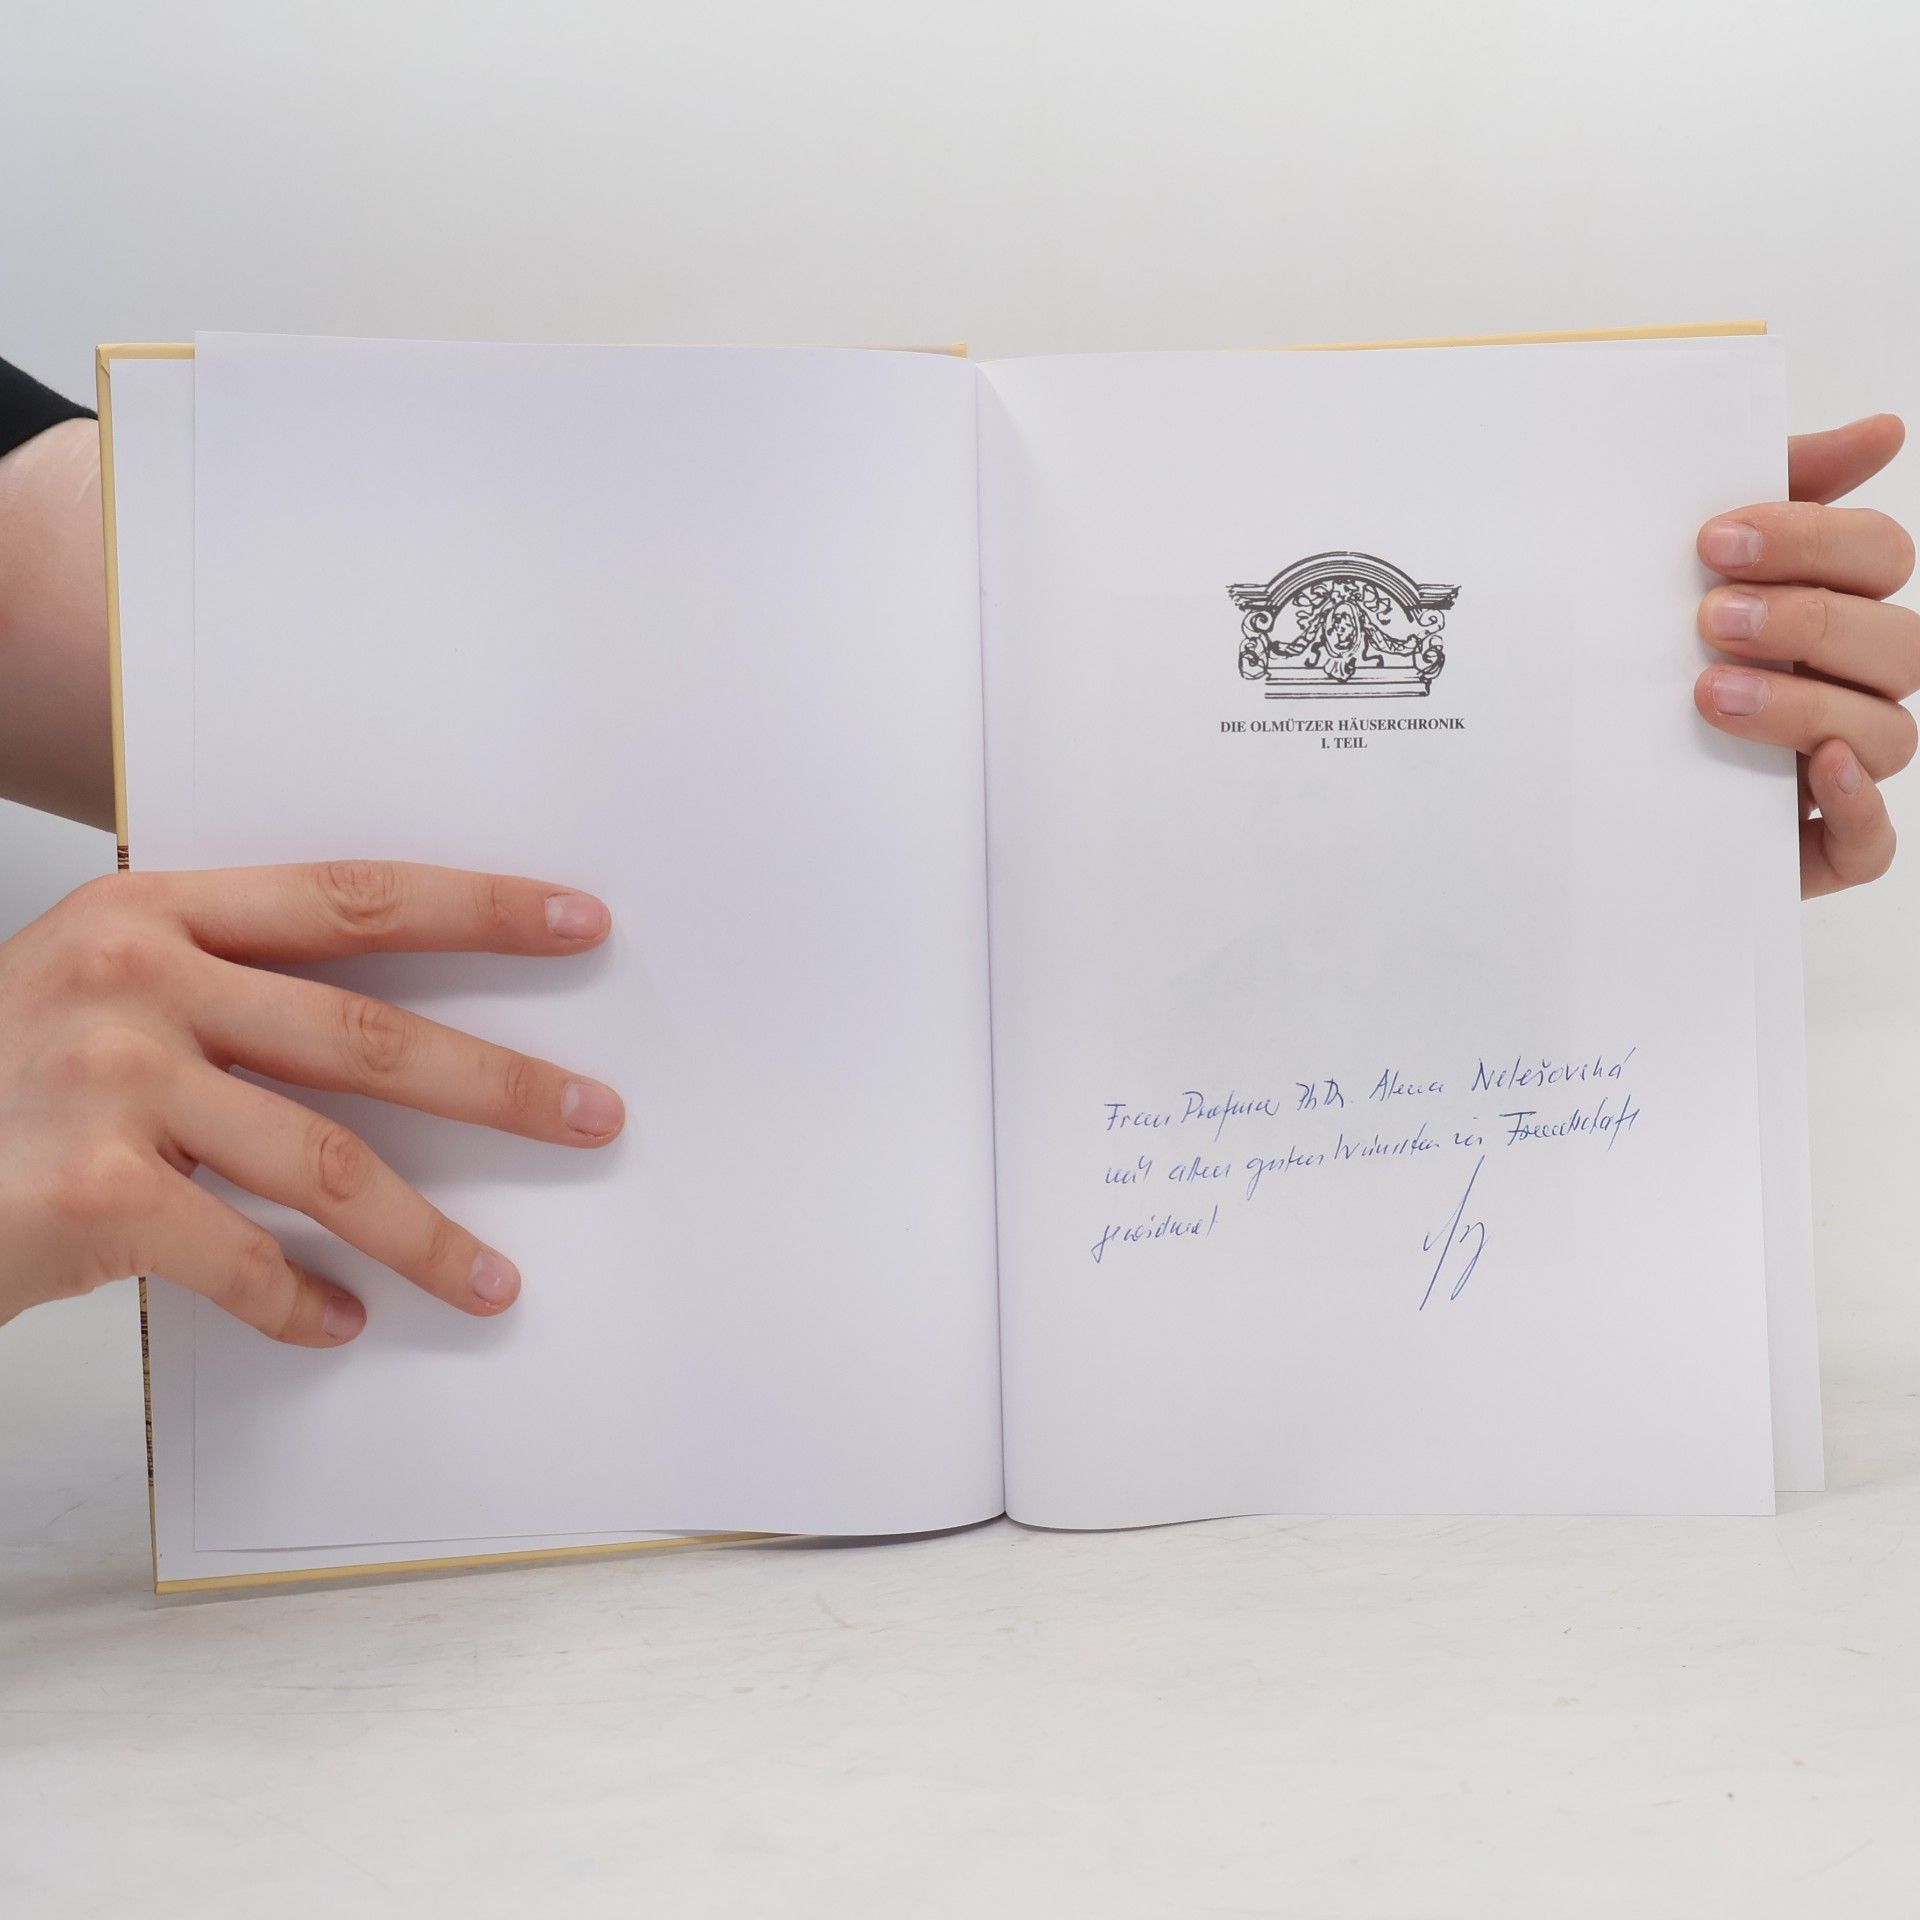 DIE OLMÜTZER HÄUSERCHRONIK
I. TEIL
Frau Professor PhDr. Alena Nelešovská
mit allen guten Wünschen in Freundschaft
gewidmet